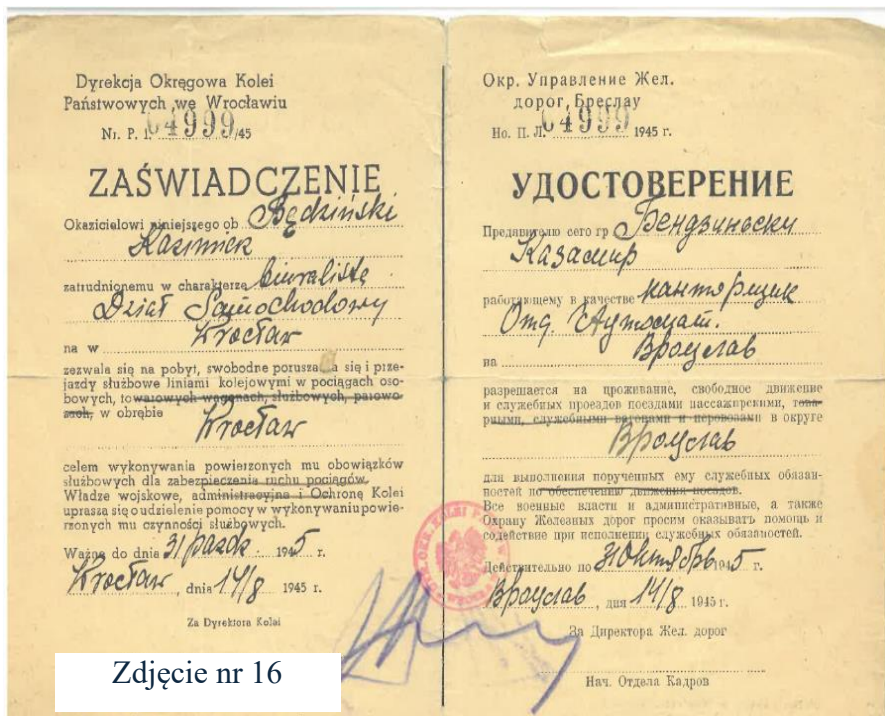 Dyrekcja Okręgowa Kolei
Państwowych we Wrocławiu
Nr. P. 1. 04999/45
ZAŚWIADCZENIE
Okazicielowi niniejszego ob Będziński
Kazimierz
zatrudnionemu w charakterze biuralistę
Dział Samochodowy
na w Wrocław
zezwala się na pobyt, swobodne poruszania się i prze-
jazdy służbowe liniami kolejowymi w pociągach oso-
bowych, towarowych wagonach, służbowych, parowo-
zach, w obrębie
Wrocław
celem wykonywania powierzonych mu obowiązków
służbowych dla zabezpieczenia ruchu pociągów.
Władze wojskowe, administracyjna i Ochronę Kolei
uprassa się o udzielenie pomocy w wykonywaniu powie-
rzonych mu czynności służbowych.
Ważne do dnia 31 paźdz. 1945 r.
Wrocław, dnia 14/8 1945 r.
Za Dyrektora Kolei
Zdjęcie nr 16
Окр. Управление Жел.
дорог, Бреслау
Но. П. Л. 04999 1945 г.
УДОСТОВЕРЕНИЕ
Предавителю сего гр Бендзиньски
Казамир
работающему в качестве канторщик
Отд. Аутомат.
на Вроцлав
разрешается на цроживание, свободное движение
и служебных проездов поездами пассажирскими, това-
рными, служебными вагонами и перовозами в округе
Вроцлав
для выполнения порученных ему служебных обязан-
ностей по обеспечению движения поездов.
Все военные власти и административные, а также
Охрану Железных дорог просим оказывать помощь и
содействие при исполнении служебных обязанностей.
Действительно по 31 Октябрь 1945 г.
Вроцлав, дня 14/8 1945 г.
За Директора Жел. дорог
Нач. Отдела Кадров